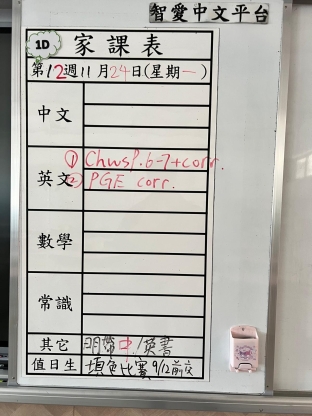 智愛中文平台
1D 家課表
第12週11月24日(星期一)
中文
英文
① Chwsp.6-7+corr.
② PGE corr.
數學
常識
其它 明帶中/英書
值日生 填色比賽9/12前交